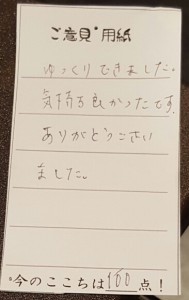 ご意見*用紙
ゆっくりできました。
気持ち良かったです。
ありがとうござい
ました。
*今のここちは100点!